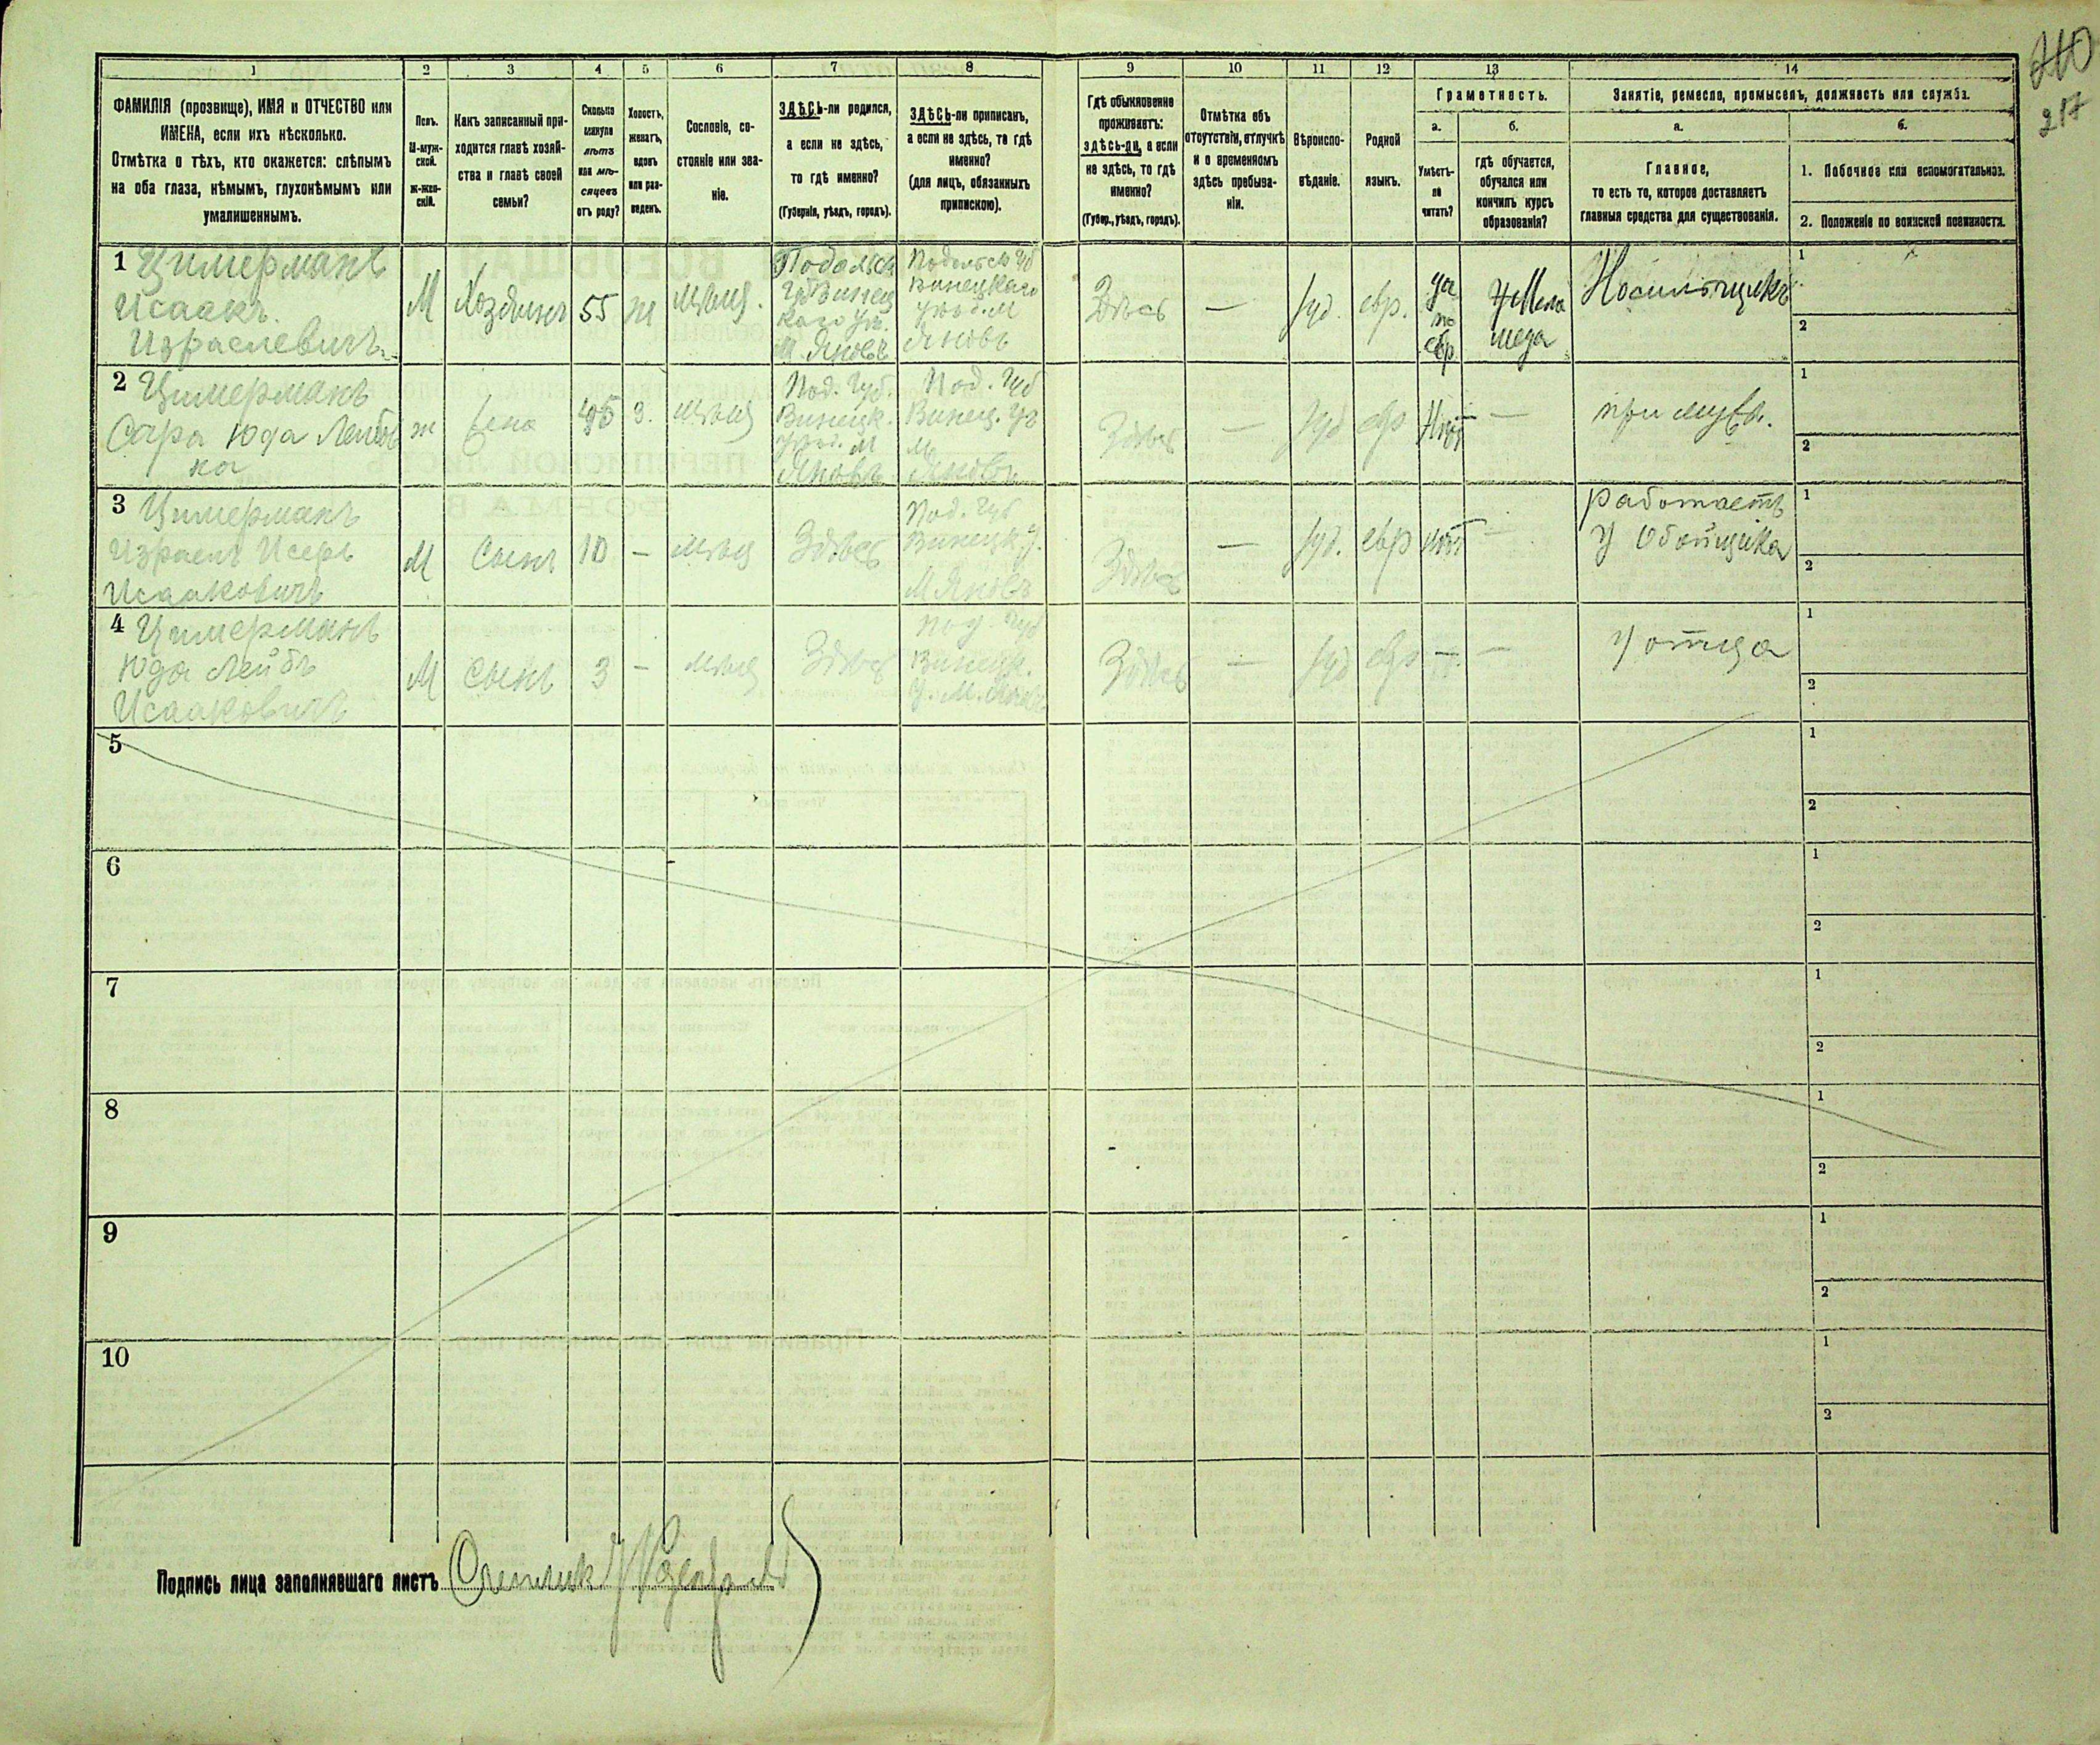 210
217
1
2
3
4
5
6
7
8
9
10
11
12
13
14
ФАМИЛІЯ (прозвище), ИМЯ и ОТЧЕСТВО или
ИМЕНА, если ихъ нѣсколько.
Отмѣтка о тѣхъ, кто окажется: слѣпымъ
на оба глаза, нѣмымъ, глухонѣмымъ или
умалишеннымъ.
Полъ.
М-муж-
ской.
ж-жен-
скій.
Какъ записанный при-
ходится главѣ хозяй-
ства и главѣ своей
семьи?
Сколько
минуло
лѣтъ
или мѣ-
сяцевъ
отъ роду?
Холостъ,
женатъ,
вдовъ
или раз-
веденъ.
Сословіе, со-
стояніе или зва-
ніе.
ЗДѢСЬ-ли родился,
а если не здѣсь,
то гдѣ именно?
(Губернія, уѣздъ, городъ).
ЗДѢСЬ-ли приписанъ,
а если не здѣсь, то гдѣ
именно?
(для лицъ, обязанныхъ
припискою).
Гдѣ обыкновенно
проживаетъ:
здѣсь-ли, а если
не здѣсь, то гдѣ
именно?
(Губер., уѣздъ, городъ).
Отмѣтка объ
отсутствіи, отлучкѣ
и о временномъ
здѣсь пребыва-
ніи.
Вѣроиспо-
вѣданіе.
Родной
языкъ.
Грамотность.
а.
б.
Умѣетъ-
ли
читать?
гдѣ обучается,
обучался или
кончилъ курсъ
образованія?
Занятіе, ремесло, промыселъ, должность или служба.
а.
б.
Главное,
то есть то, которое доставляетъ
главныя средства для существованія.
1. Побочное или вспомогательное.
2. Положеніе по воинской повинности.
1 Цимерманъ
Исаакъ
Израелевичъ
М
Хозяинъ
55
ж
мѣщ.
Подольск
Губ Винец
каго Уѣ.
М Яновъ
Подольск Губ
Винецкаго
уѣзд. М
Яновъ
Здѣсь
—
Іуд.
евр.
да
по
евр
У Мела
меда
Носильщикъ
1
2
2 Цимерманъ
Сура Юда Лейбов
на
ж
Жена
45
з.
мѣщ
Под. Губ.
Винецк.
уѣзд. М
Яновъ
Под. Губ
Винец. Уѣ
М.
Яновъ
Здѣсь
—
Іуд
евр
Нѣтъ
—
при мужѣ.
1
2
3 Цимерманъ
Израель Исеръ
Исааковичъ
М
Сынъ
10
—
мѣщ
Здѣсь
Под. Губ
Винецк У.
М Яновъ
Здѣсь
—
Іуд.
евр
нѣтъ
—
работаетъ
у Обойщика
1
2
4 Цимерманъ
Юда Лейбъ
Исааковичъ
М
Сынъ
3
—
мѣщ
Здѣсь
Под. Губ
Винецк.
У. М. Яновъ
Здѣсь
—
Іуд
евр
—
—
У отца
1
2
5
1
2
6
1
2
7
1
2
8
1
2
9
1
2
10
1
2
Подпись лица заполнявшаго листъ